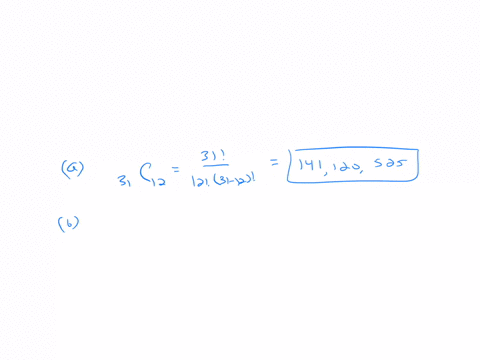 (a) ₃₁C₁₂ = 31! / 12!(31-12)! = 141,120,525
(b)